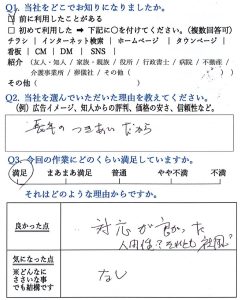 Q1. 当社をどこでお知りになりましたか。
☑ 前に利用したことがある
□ 初めて利用した ➡ 下に○を付けてください。(複数回答可)
チラシ | インターネット検索 | ホームページ | タウンページ |
看板 | CM | DM | SNS |
紹介 (友人・知人 / 家族・親族 / 役所 / 行政書士 / 病院 / 不動産
介護事業所 / 葬儀社 / その他( ))
その他( )
Q2. 当社を選んでいただいた理由を教えてください。
(例) 広告イメージ、知人からの評判、価格の安さ、信頼性など。
長年のつきあいだから
Q3. 今回の作業にどのくらい満足していますか。
満足 まあまあ満足 普通 やや不満 不満
それはどのような理由からですか。
良かった点
対応が良かった
人間性?それとも
気になった点
※どんなに
ささいな事
でも結構です
なし